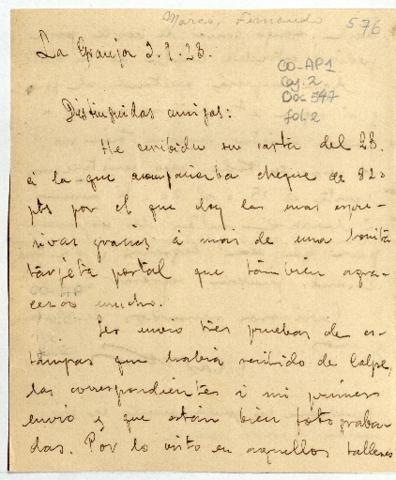 Marco, Fernando
576
La Granja 3.9.23.
CO-AP1
Caj. 2
Doc 547
fol. 2
Distinguidas amigas:
He recibido su carta del 28.
á la que acompañaba cheque de 82
pts por el que doy las mas expre-
sivas gracias á mais de una bonita
tarjeta postal que tambien agra-
dezco mucho.
Les envio tres pruebas de es-
tampas que habia recibido de Calpe,
las correspondientes á mi primer
envio y que estan bien fotograba-
das. Por lo visto en aquellos talleres